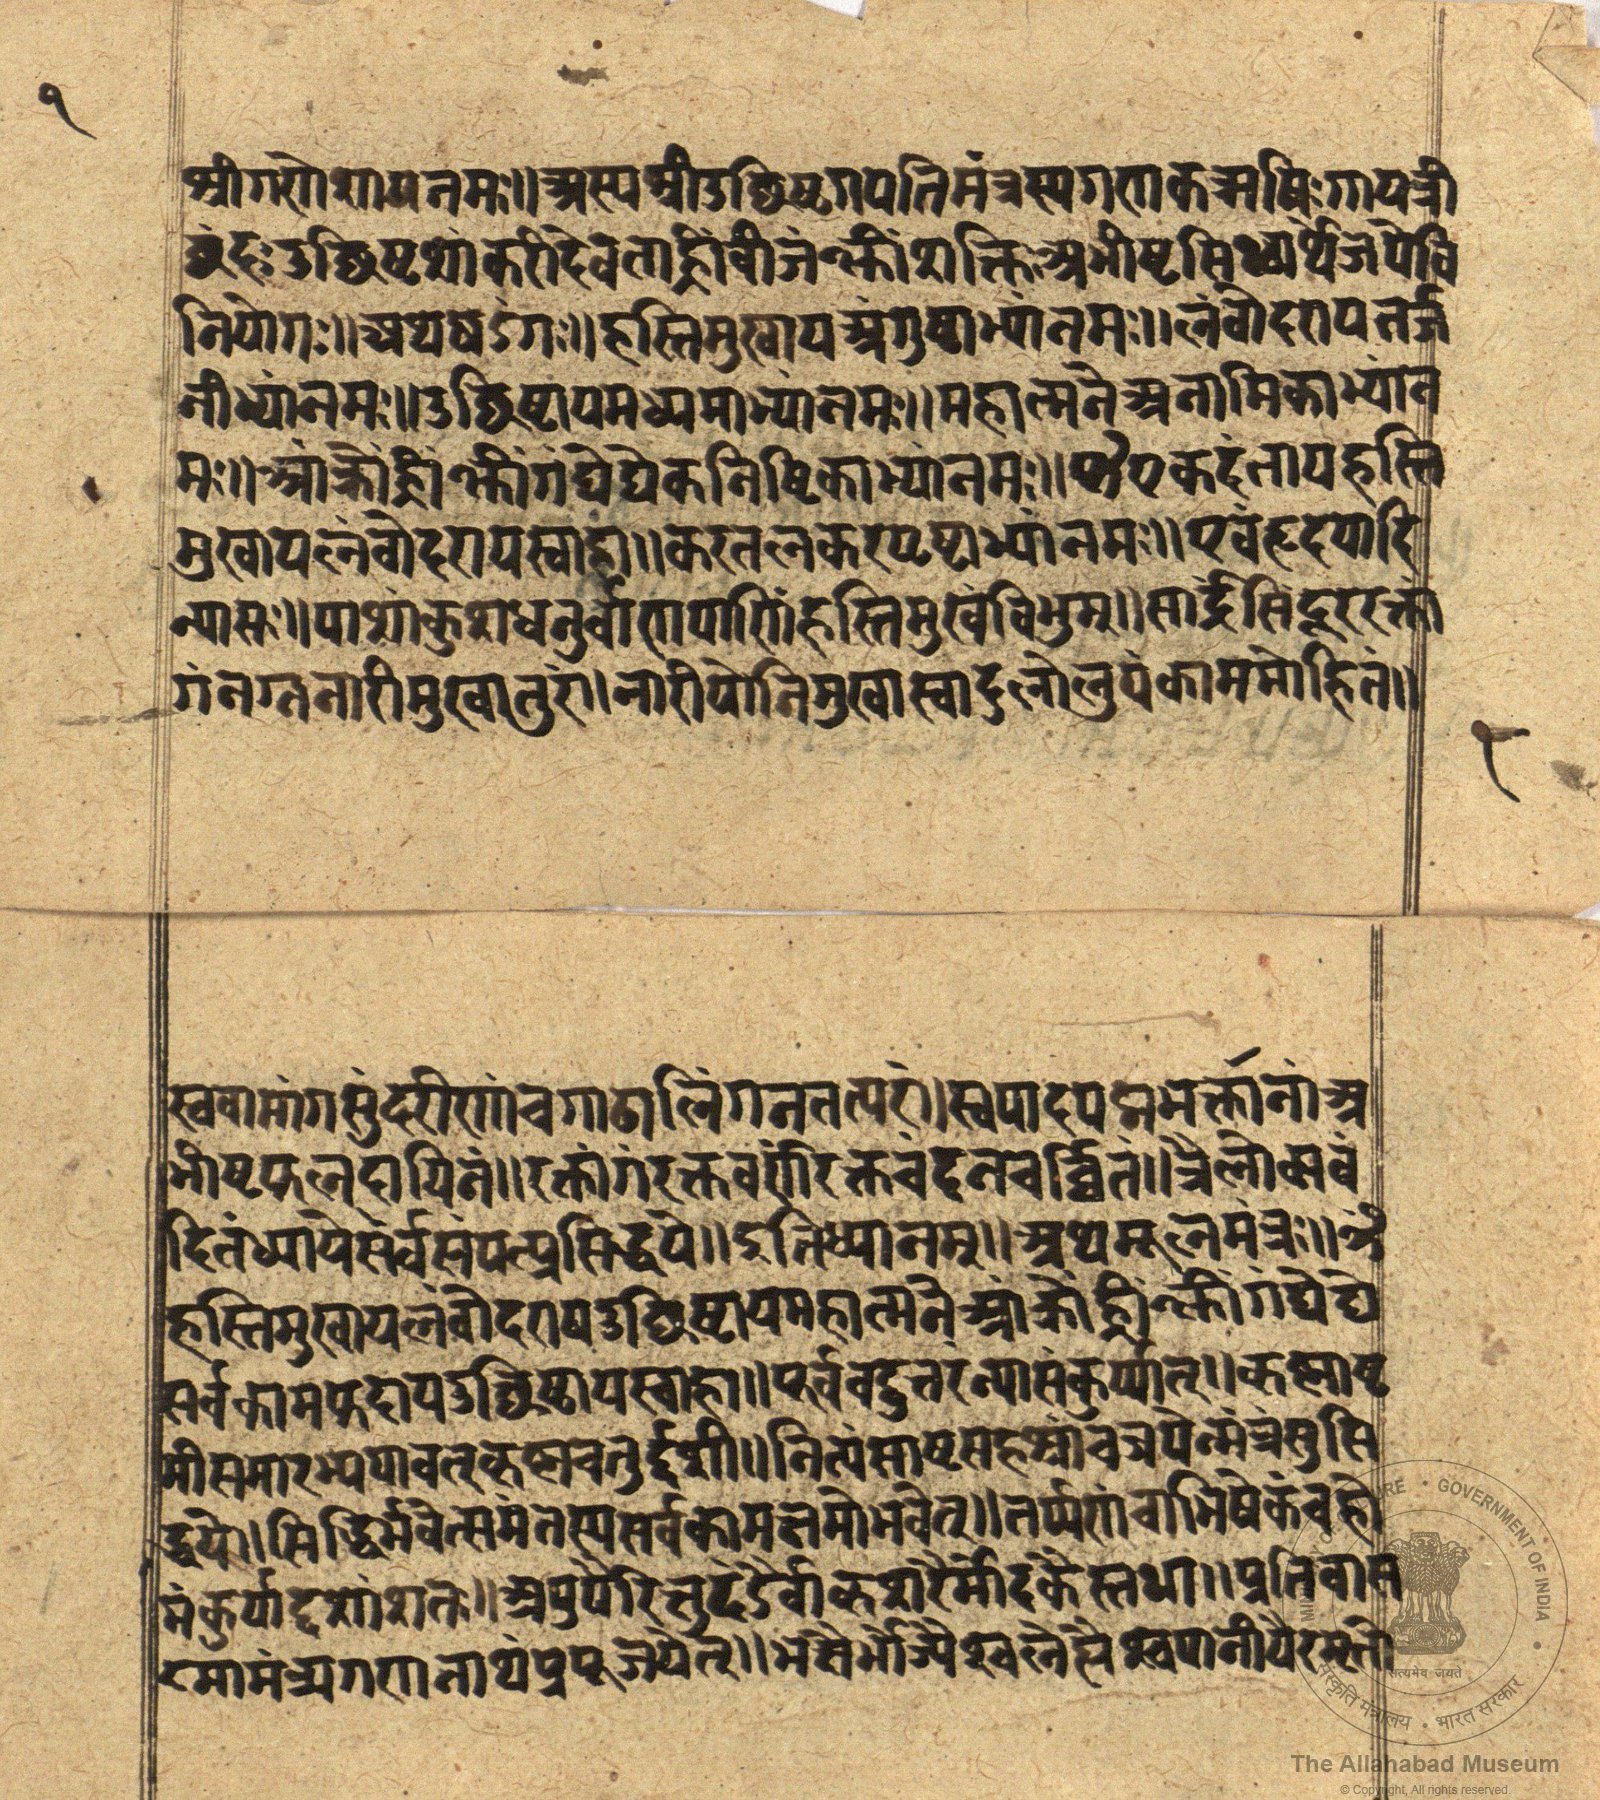 १
श्रीगणेशायनमः॥अस्यश्रीउच्छिष्टगपतिमंत्रस्यगणकऋषिःगायत्री
छंदःउच्छिष्टशांकरीदेवताह्रींवीजंक्लींशक्तिःअभीष्टसिध्यर्थेजपेवि
नियोगः॥अथषडंगः॥हस्तिमुखायअंगुष्ठाभ्यांनमः॥लंवोदरायतर्ज
नीभ्यांनमः॥उच्छिष्टायमध्यमाभ्यांनमः॥महात्मनेअनामिकाभ्यांन
मः॥आंक्रोंह्रींक्लींगंघेघेकनिष्टिकाभ्यांनमः॥एकदंतायहस्ति
मुखायलंवोदरायस्वाहा॥करतलकरपृष्टाभ्यांनमः॥एवंहृदयादि
न्यासः॥पाशांकुशधनुर्वाणपाणिंहस्तिमुखंविभुम्॥सार्द्रंसिंदूररक्तां
गंनग्ननारीमुखातुरं।नारीयोनिमुखास्वादुलोलुपंकाममोहितं॥
१
स्ववामांगसुंदरीणांचगाढालिंगनतत्परं।स्वपादपद्मभर्क्तानांअ
भीष्टफलदायिनं॥रक्तांगंरक्तवर्णंरक्तचंदनचर्च्चितं॥त्रैलोक्यवं
दितंध्यायेसर्वसंपत्प्रसिद्धये॥इतिध्यानम्॥अथमूलमंत्रः॥ॐ
हस्तिमुखायलंवोदरायउच्छिष्टायमहात्मनेआंक्रोंह्रींक्लींगंघेघे
सर्वकामफदायउच्छिष्ठायस्वाहा॥पूर्ववदुत्तरंन्यासंकुर्य्यात्॥कृष्णाष्ट
मीसमारभ्ययावत्कृष्णचतुर्द्दशी॥नित्यंसाष्टसहस्रंचजपेन्मंत्रंसुसि
द्धये॥सिद्धिर्भवेत्समंतस्यसर्वकामत्तमोभवेत्॥तर्प्पणंचाभिषेकंचहो
मंकुर्याद्दशांशतः॥अपुपैरितुदंडैर्वाकृशरैर्मोदकैस्तथा॥प्रतिवास
रमोमंत्र्यगणनाथंप्रपूजयेत्॥भक्ष्यैर्भोज्यैश्चलेह्यैश्चपानीयैरमृतो
MINISTRY OF CULTURE • GOVERNMENT OF INDIA
सत्यमेव जयते
संस्कृति मंत्रालय • भारत सरकार
The Allahabad Museum
© Copyright, All rights reserved.